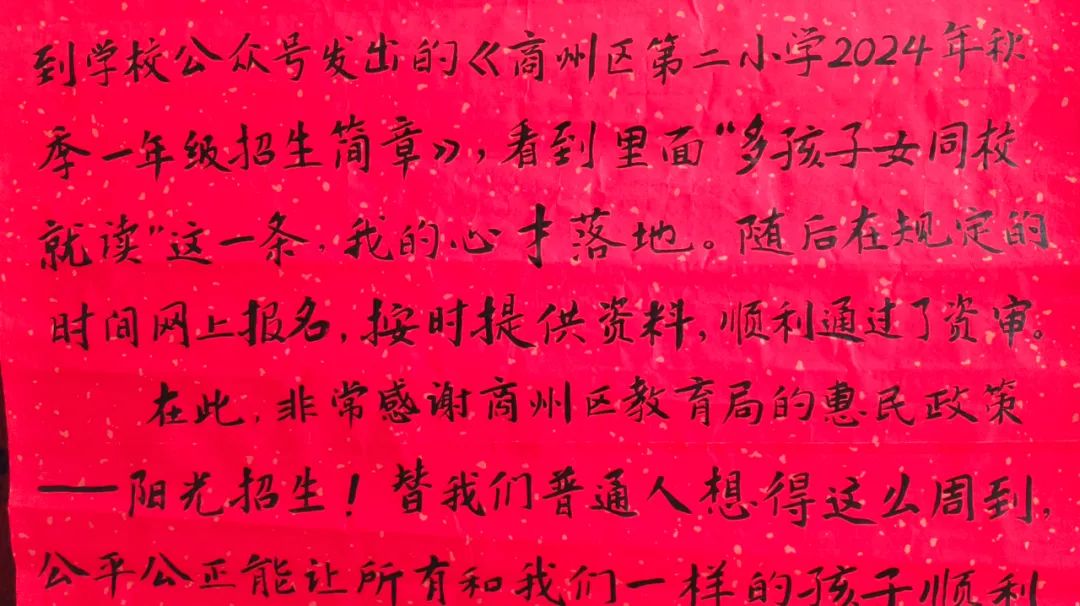 到学校公众号发出的《商州区第二小学2024年秋
季一年级招生简章》，看到里面“多孩子女同校
就读”这一条，我的心才落地。随后在规定的
时间网上报名，按时提供资料，顺利通过了资审。
在此，非常感谢商州区教育局的惠民政策
——阳光招生！替我们普通人想得这么周到，
公平公正能让所有和我们一样的孩子顺利